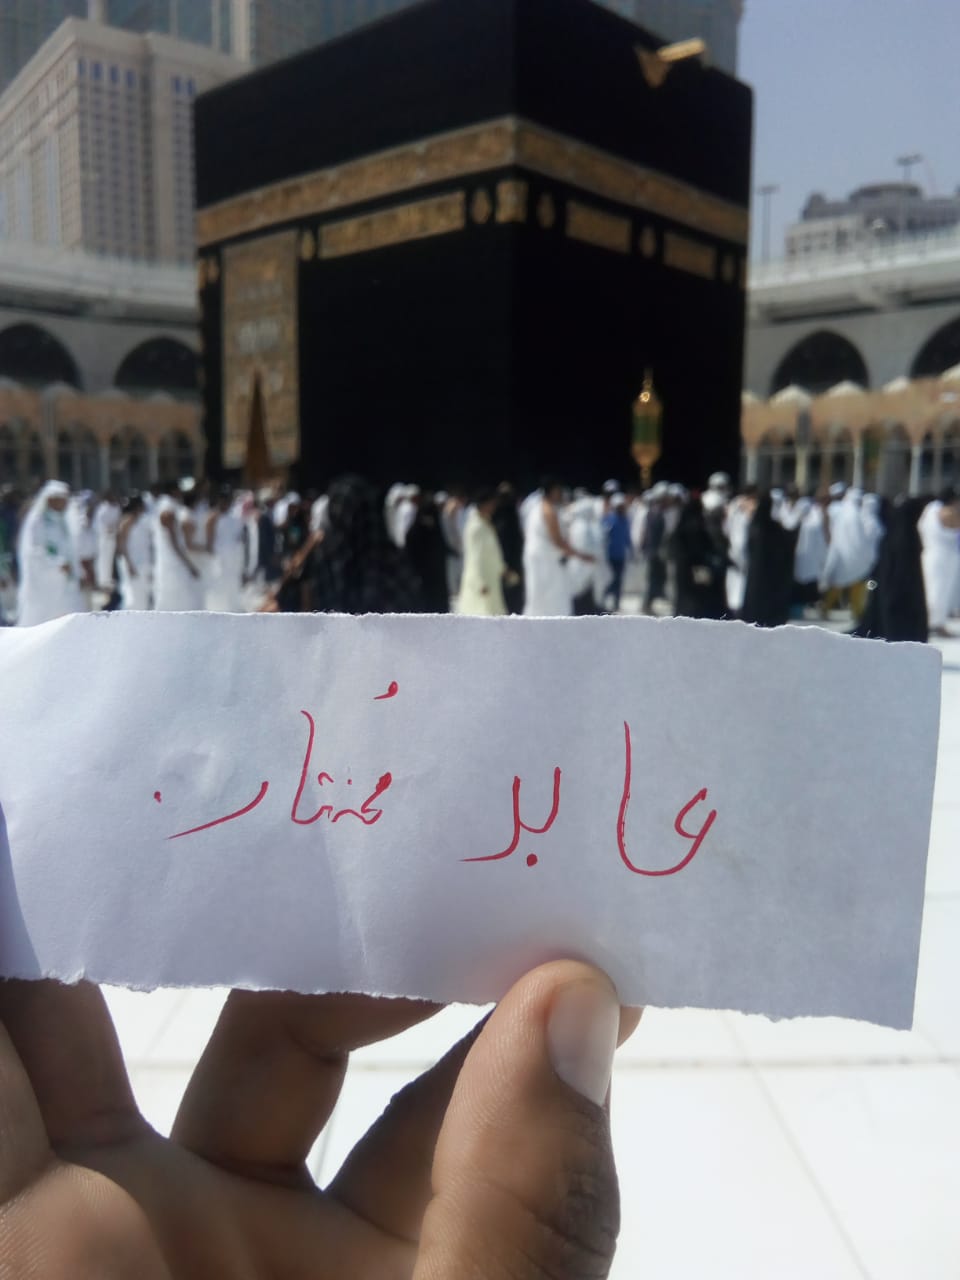 عابد مُختار